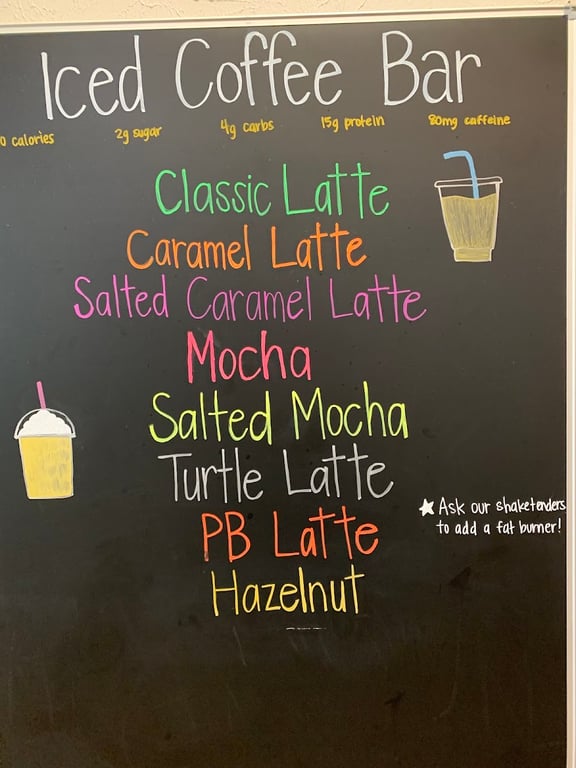 Iced Coffee Bar
0 calories 2g sugar 4g carbs 15g protein 80mg caffeine
Classic Latte
Caramel Latte
Salted Caramel Latte
Mocha
Salted Mocha
Turtle Latte
PB Latte
Hazelnut
★ Ask our shaketenders
to add a fat burner!